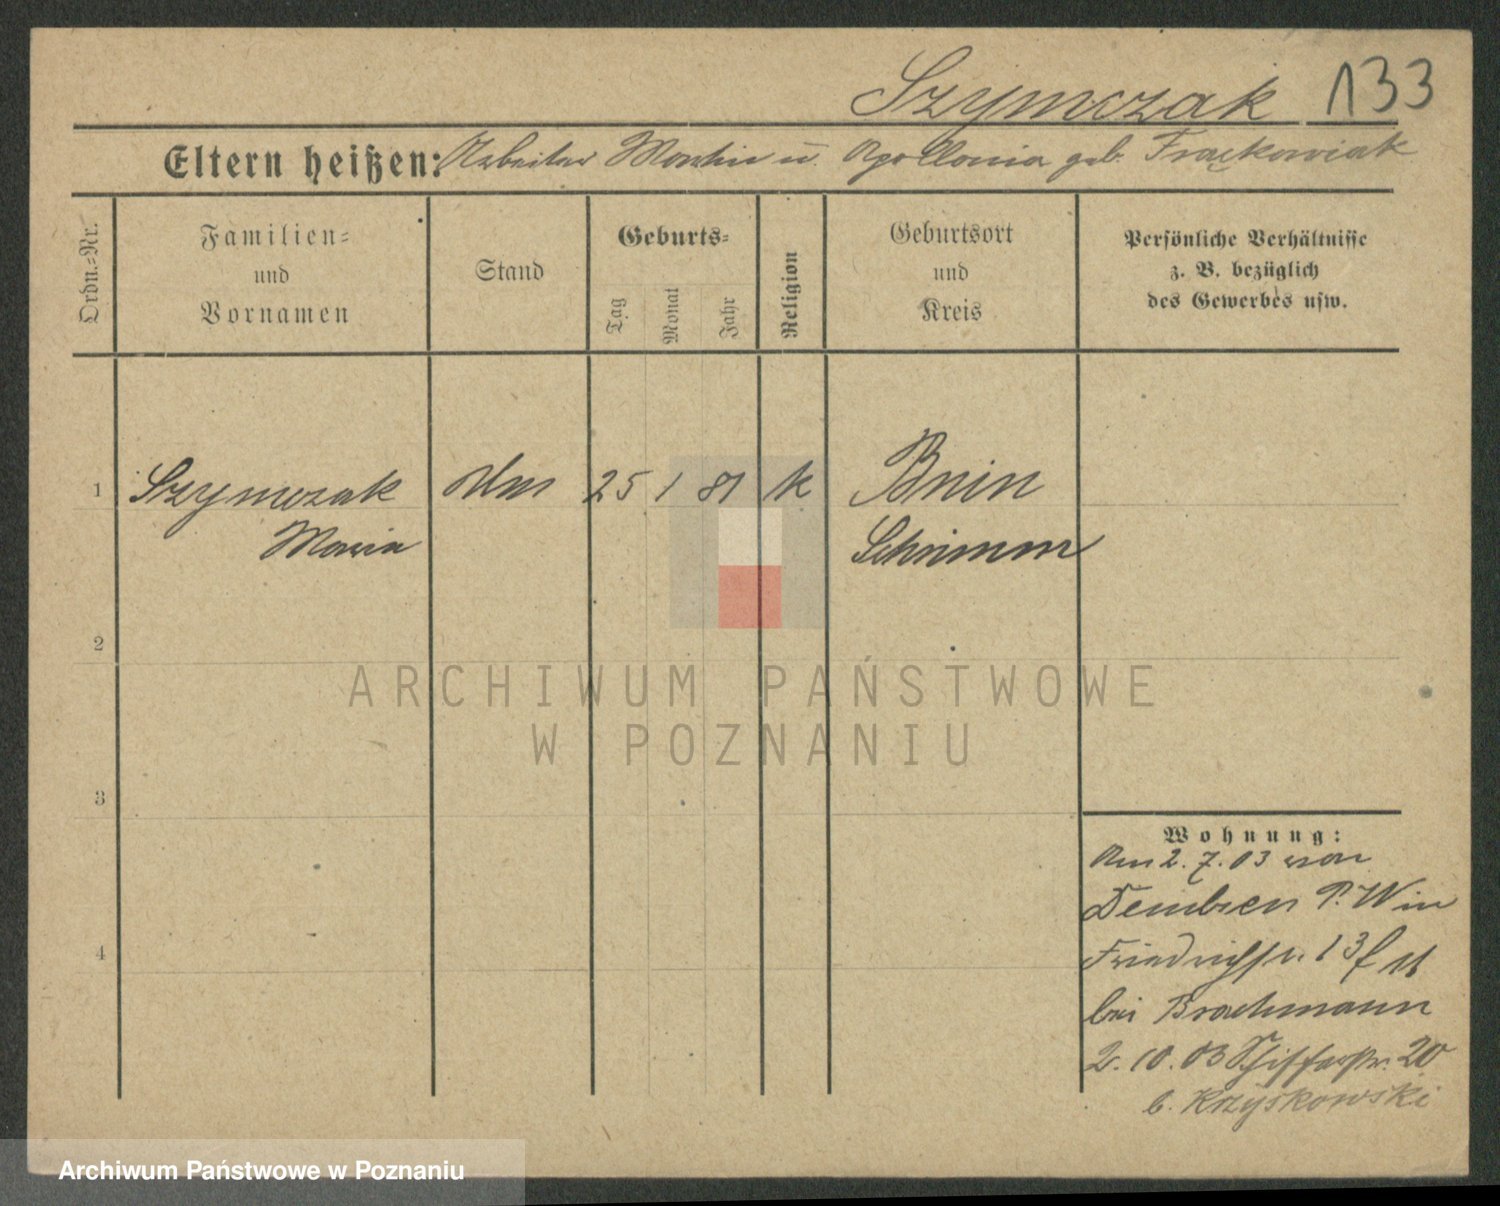 Szymczak 133
Eltern heißen: Arbeiter Martin u. Apollonia geb. Frąckowiak
Ordn.-Nr.
Familien-
und
Vornamen
Stand
Geburts-
Tag
Monat
Jahr
Religion
Geburtsort
und
Kreis
Persönliche Verhältnisse
z. B. bezüglich
des Gewerbes usw.
1 Szymczak 25 1 81 k Bnin
Maria Schrimm
2
ARCHIWUM PAŃSTWOWE
W POZNANIU
3
4
Wohnung:
Am 2. 7. 03 von
Dembsen P. Win
Friedrichstr. 13
bei Brachmann
2. 10. 03 Schifferstr. 20
b. Krzyskowski
Archiwum Państwowe w Poznaniu